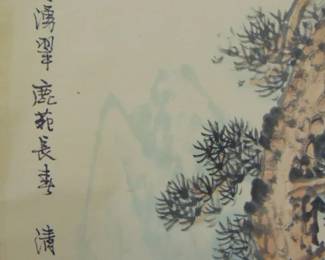 湧翠鹿苑長春 清